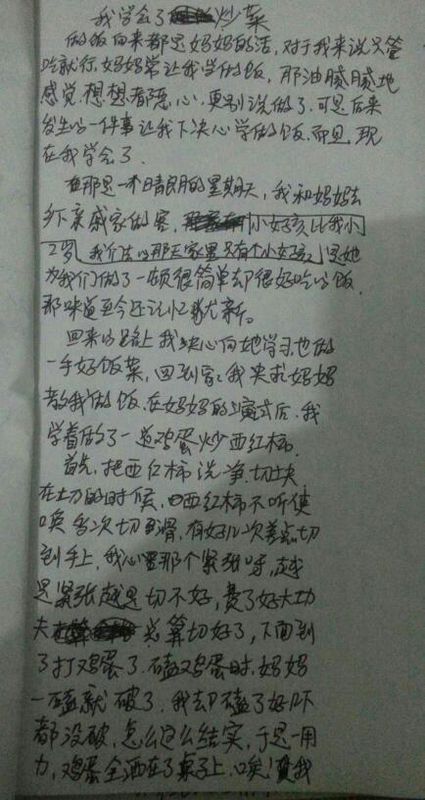 我学会了炒菜
做饭向来都是妈妈的活,对于我来说只管
吃就行.妈妈常让我学做饭,那油腻腻地
感觉.想想都恶心.更别说做了.可是后来
发生的一件事让我下决心学做饭.而且现
在我学会了.
在那是一个晴朗的星期天,我和妈妈去
乡下亲戚家做客,小女孩比我小
2岁 我们去的那天家里只有个小女孩 是她
为我们做了一顿很简单却很好吃的饭.
那味道至今还记忆犹新。
回来的路上我决心向她学习也做
一手好饭菜,回到家,我央求妈妈
教我做饭.在妈妈的演式后,我
学着做了一道鸡蛋炒西红柿.
首先,把西红柿洗净.切块
在切的时候,西红柿不听使
唤 每次切都滑,有好几次差点切
到手上,我心里那个紧张呀,越
是紧张越是切不好,费了好大功
夫 总算切好了,下面到
了打鸡蛋了.磕鸡蛋时.妈妈
一磕就破了.我却磕了好几下
都没破,怎么这么结实,于是一用
力,鸡蛋全洒在了桌子上.唉!费我